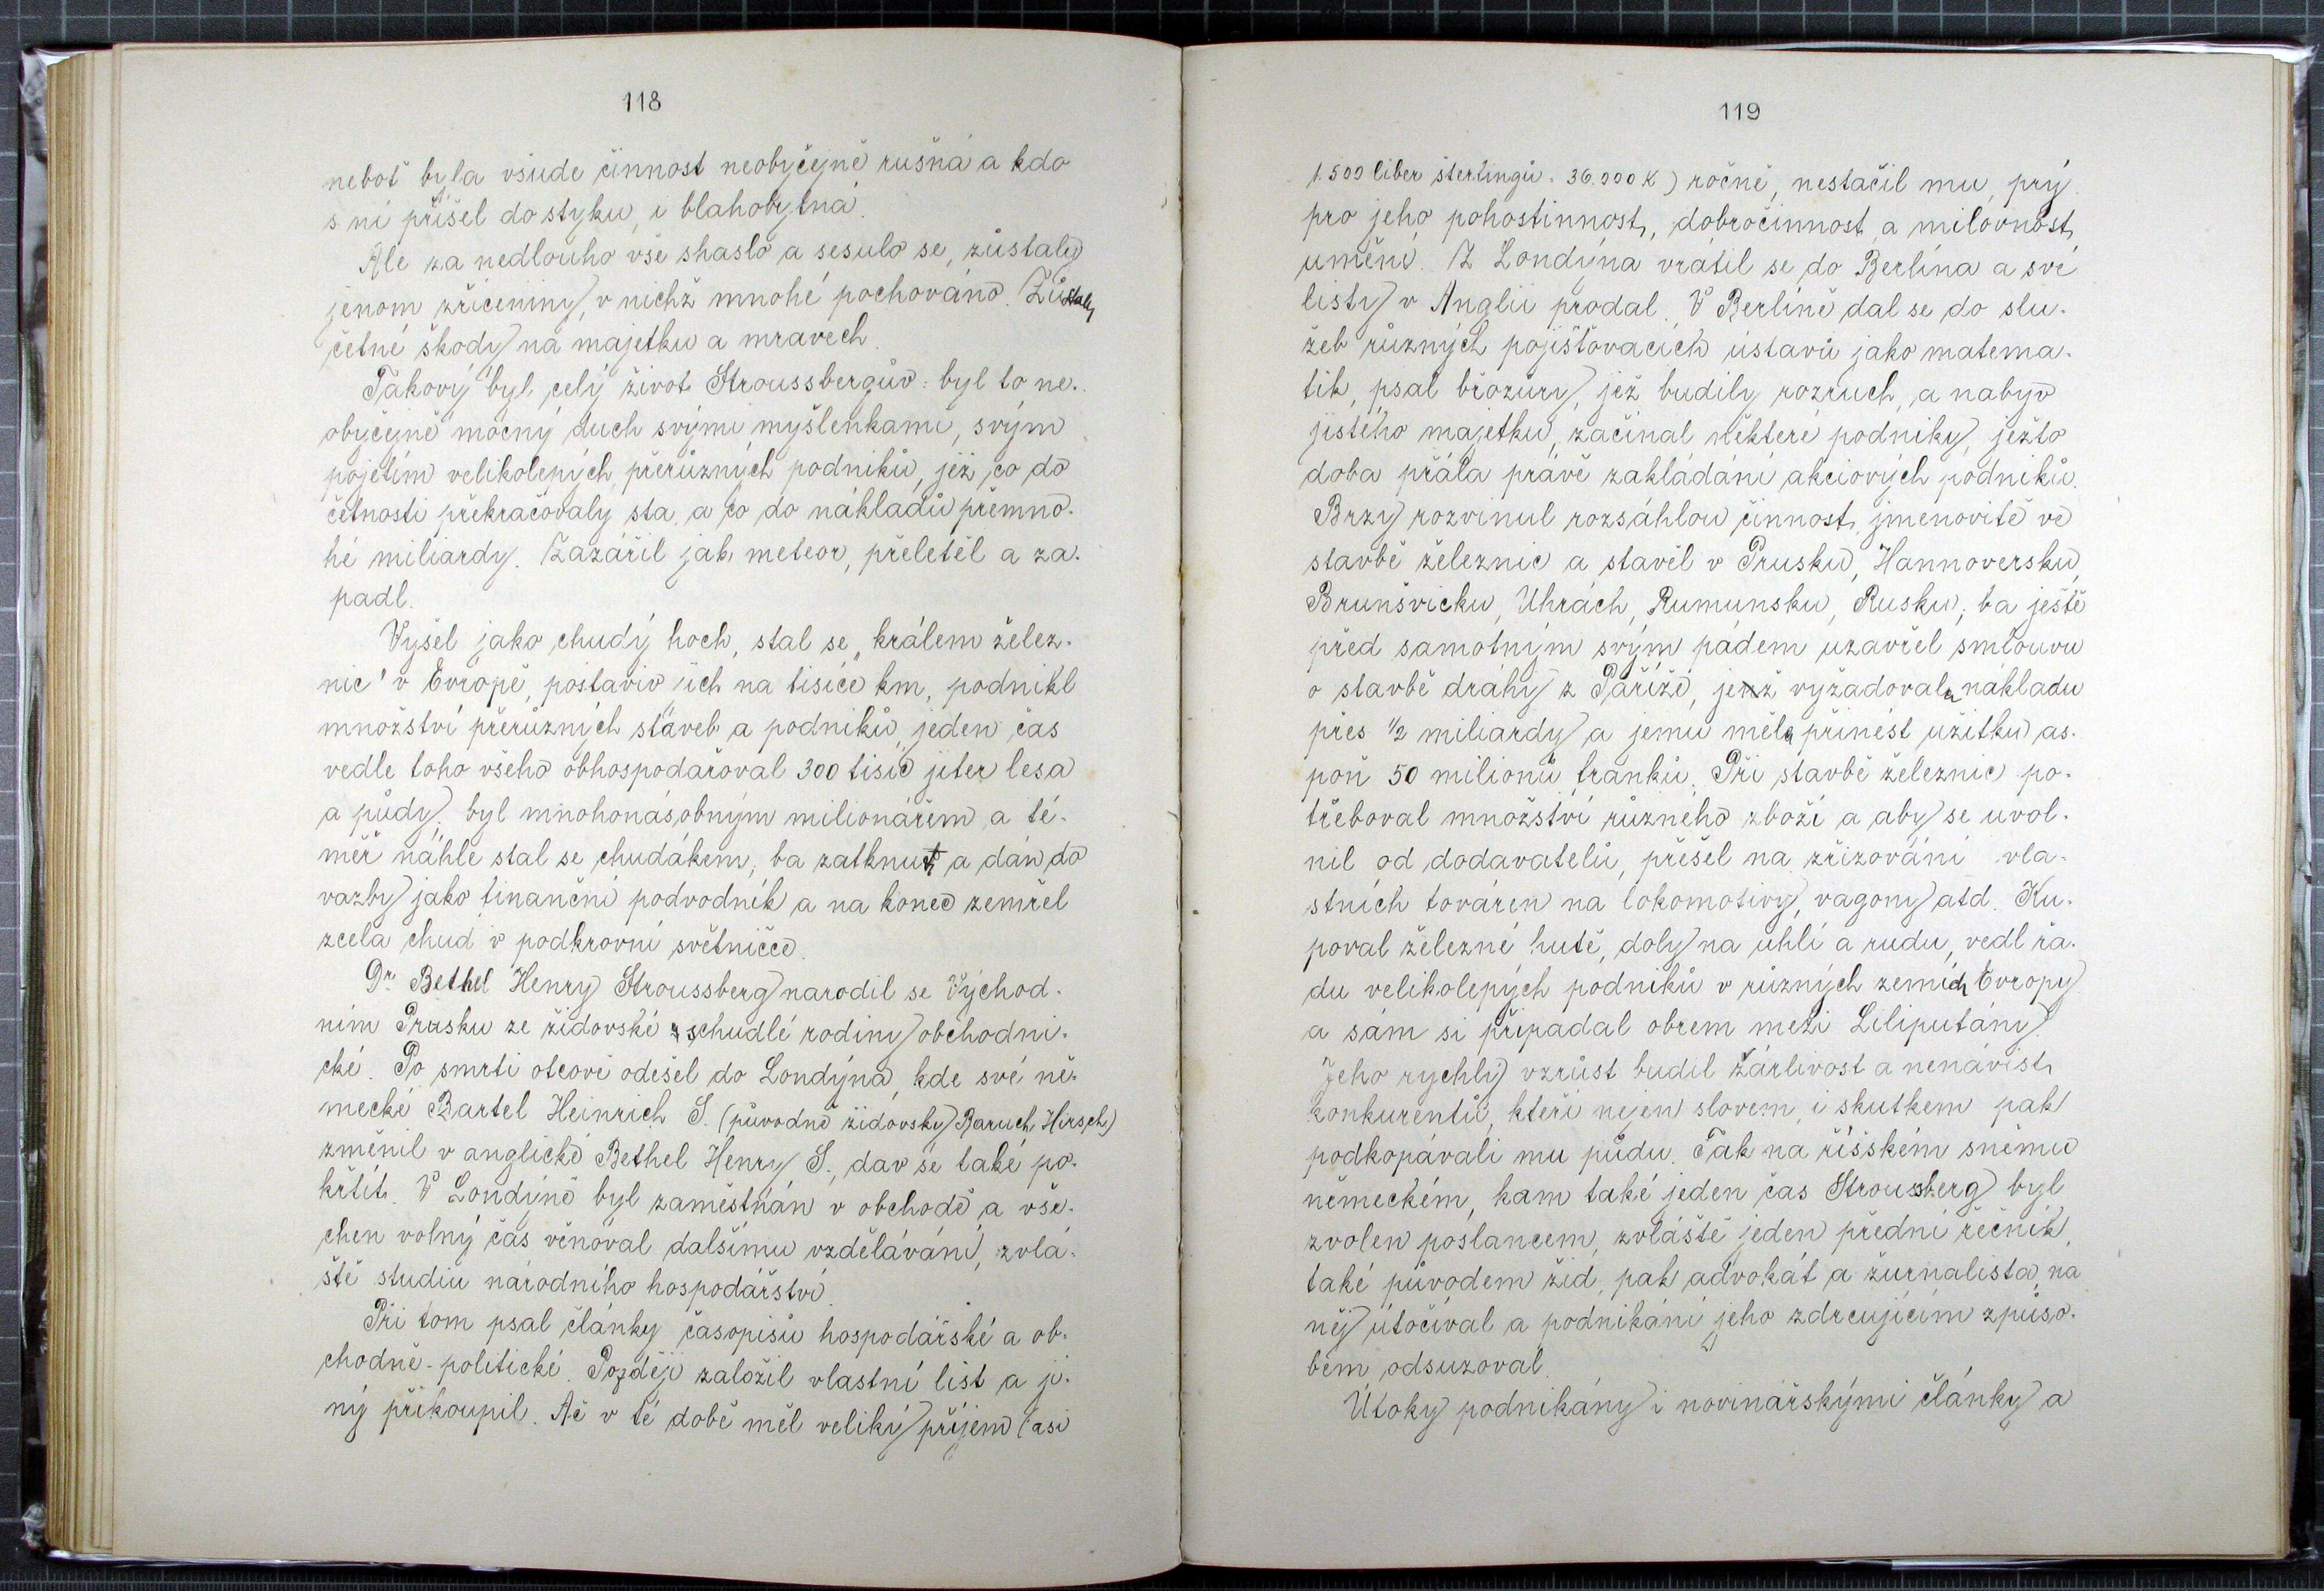 118
neboť byla všude činnost neobyčejně rušná a kdo
s ní přišel do styku, i blahobytná.
Ale za nedlouho vše shaslo a sesulo se, zůstaly
jenom zříceniny, v nichž mnohé pochováno. Zůstaly
četné škody na majetku a mravech.
Takový byl celý život Stroussbergův: byl to ne-
obyčejně mocný duch svými myšlenkami, svým
pojetím velikolepých přerůzných podniků, jež co do
četnosti překračovaly sta, a co do nákladů přemno-
hé miliardy. Zazářil jak meteor, přeletěl a za-
padl.
Vyšel jako chudý hoch, stal se „králem želez-
nic" v Evropě, postaviv jich na tisíce km, podnikl
množství přerůzných staveb a podniků, jeden čas
vedle toho všeho obhospodařoval 300 tisíc jiter lesa
a půdy, byl mnohonásobným milionářem a té-
měř náhle stal se chudákem, ba zatknut a dán do
vazby jako finanční podvodník a na konec zemřel
zcela chud v podkrovní světničce.
Dr Bethel Henry Stroussberg narodil se Východ-
ním Prusku ze židovské schudlé rodiny obchodni-
cké. Po smrti otcově odešel do Londýna, kde své ně-
mecké Bartel Heinrich S. (původně židovsky Baruch Hirsch)
změnil v anglické Bethel Henry S., dav se také po-
křtít. V Londýně byl zaměstnán v obchodě a vše-
chen volný čas věnoval dalšímu vzdělávání, zvlá-
ště studiu národního hospodářství.
Při tom psal články časopisů hospodářské a ob-
chodně-politické. Později založil vlastní list a ji-
ný přikoupil. Ač v té době měl veliký příjem (asi
119
1.500 liber šterlingů. 36.000 K) ročně, nestačil mu prý
pro jeho pohostinnost, dobročinnost a milovnost
umění. Z Londýna vrátil se do Berlína a své
listy v Anglii prodal. V Berlíně dal se do slu-
žeb různých pojišťovacích ústavů jako matema-
tik, psal brožury, jež budily rozruch, a nabyv
jistého majetku, začínal některé podniky, ježto
doba přála právě zakládání akciových podniků.
Brzy rozvinul rozsáhlou činnost, jmenovitě ve
stavbě železnic a stavěl v Prusku, Hannoversku,
Brunšvicku, Uhrách, Rumunsku, Rusku, ba ještě
před samotným svým pádem uzavřel smlouvu
o stavbě dráhy z Paříže, jež vyžadovala nákladu
přes 1/2 miliardy a jemu měla přinést užitku as-
poň 50 milionů franků. Při stavbě železnic po-
třeboval množství různého zboží a aby se uvol-
nil od dodavatelů, přešel na zřizování vla-
stních továren na lokomotivy, vagony atd. Ku-
poval železné hutě, doly na uhlí a rudu, vedl řa-
du velikolepých podniků v různých zemích Evropy
a sám si připadal obrem mezi Liliputány.
Jeho rychlý vzrůst budil žárlivost a nenávist
konkurentů, kteří nejen slovem, i skutkem pak
podkopávali mu půdu. Tak na říšském sněmu
německém, kam také jeden čas Stroussberg byl
zvolen poslancem, zvláště jeden přední řečník,
také původem žid, pak advokát a žurnalista, na
něj útočíval a podnikání jeho zdrcujícím způso-
bem odsuzoval.
Útoky podnikány i novinářskými články a